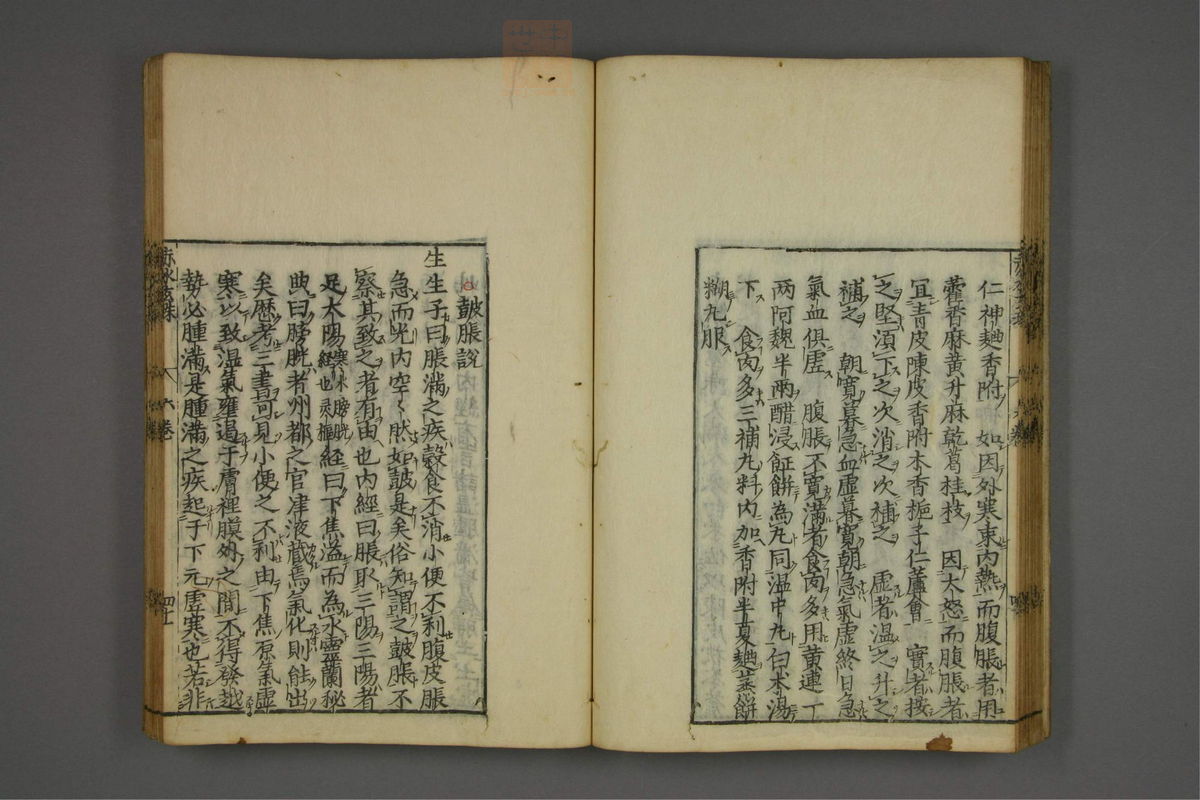 仁神麯香附　如因外寒束内熱而腹脹者用
藿香麻黄升麻乾葛桂枝　因大怒而腹脹者
宜青皮陳皮香附木香梔子仁蘆會　實者按
之堅須下之次消之次補之　虚者温之升之
補之　朝寛暮急血虚暮寛朝急氣虚終日急
氣血俱虚　腹脹不寛滿者食肉多用黄連一
两阿魏半兩醋浸䭔餅為丸同温中丸白术湯
下　食肉多三補丸料内加香附半夏麯蒸餅
糊丸服
皷脹説
生生子曰脹滿之疾穀食不消小便不利腹皮脹
急而光内空〻然如皷是矣俗知謂之皷脹不
察其致之者有由也内經曰脹取三陽三陽者
足太陽寒水膀胱經也灵樞經曰下焦溢而為水靈蘭秘
典曰膀胱者州都之官津液藏焉氣化則能出
矣歴考三書可見小便之不利由下焦原氣虚
寒以致温氣壅遏于膚裡膜外之間不得發越
勢必腫滿是腫滿之疾起于下元虚寒也若非
赤水玄珠
六卷